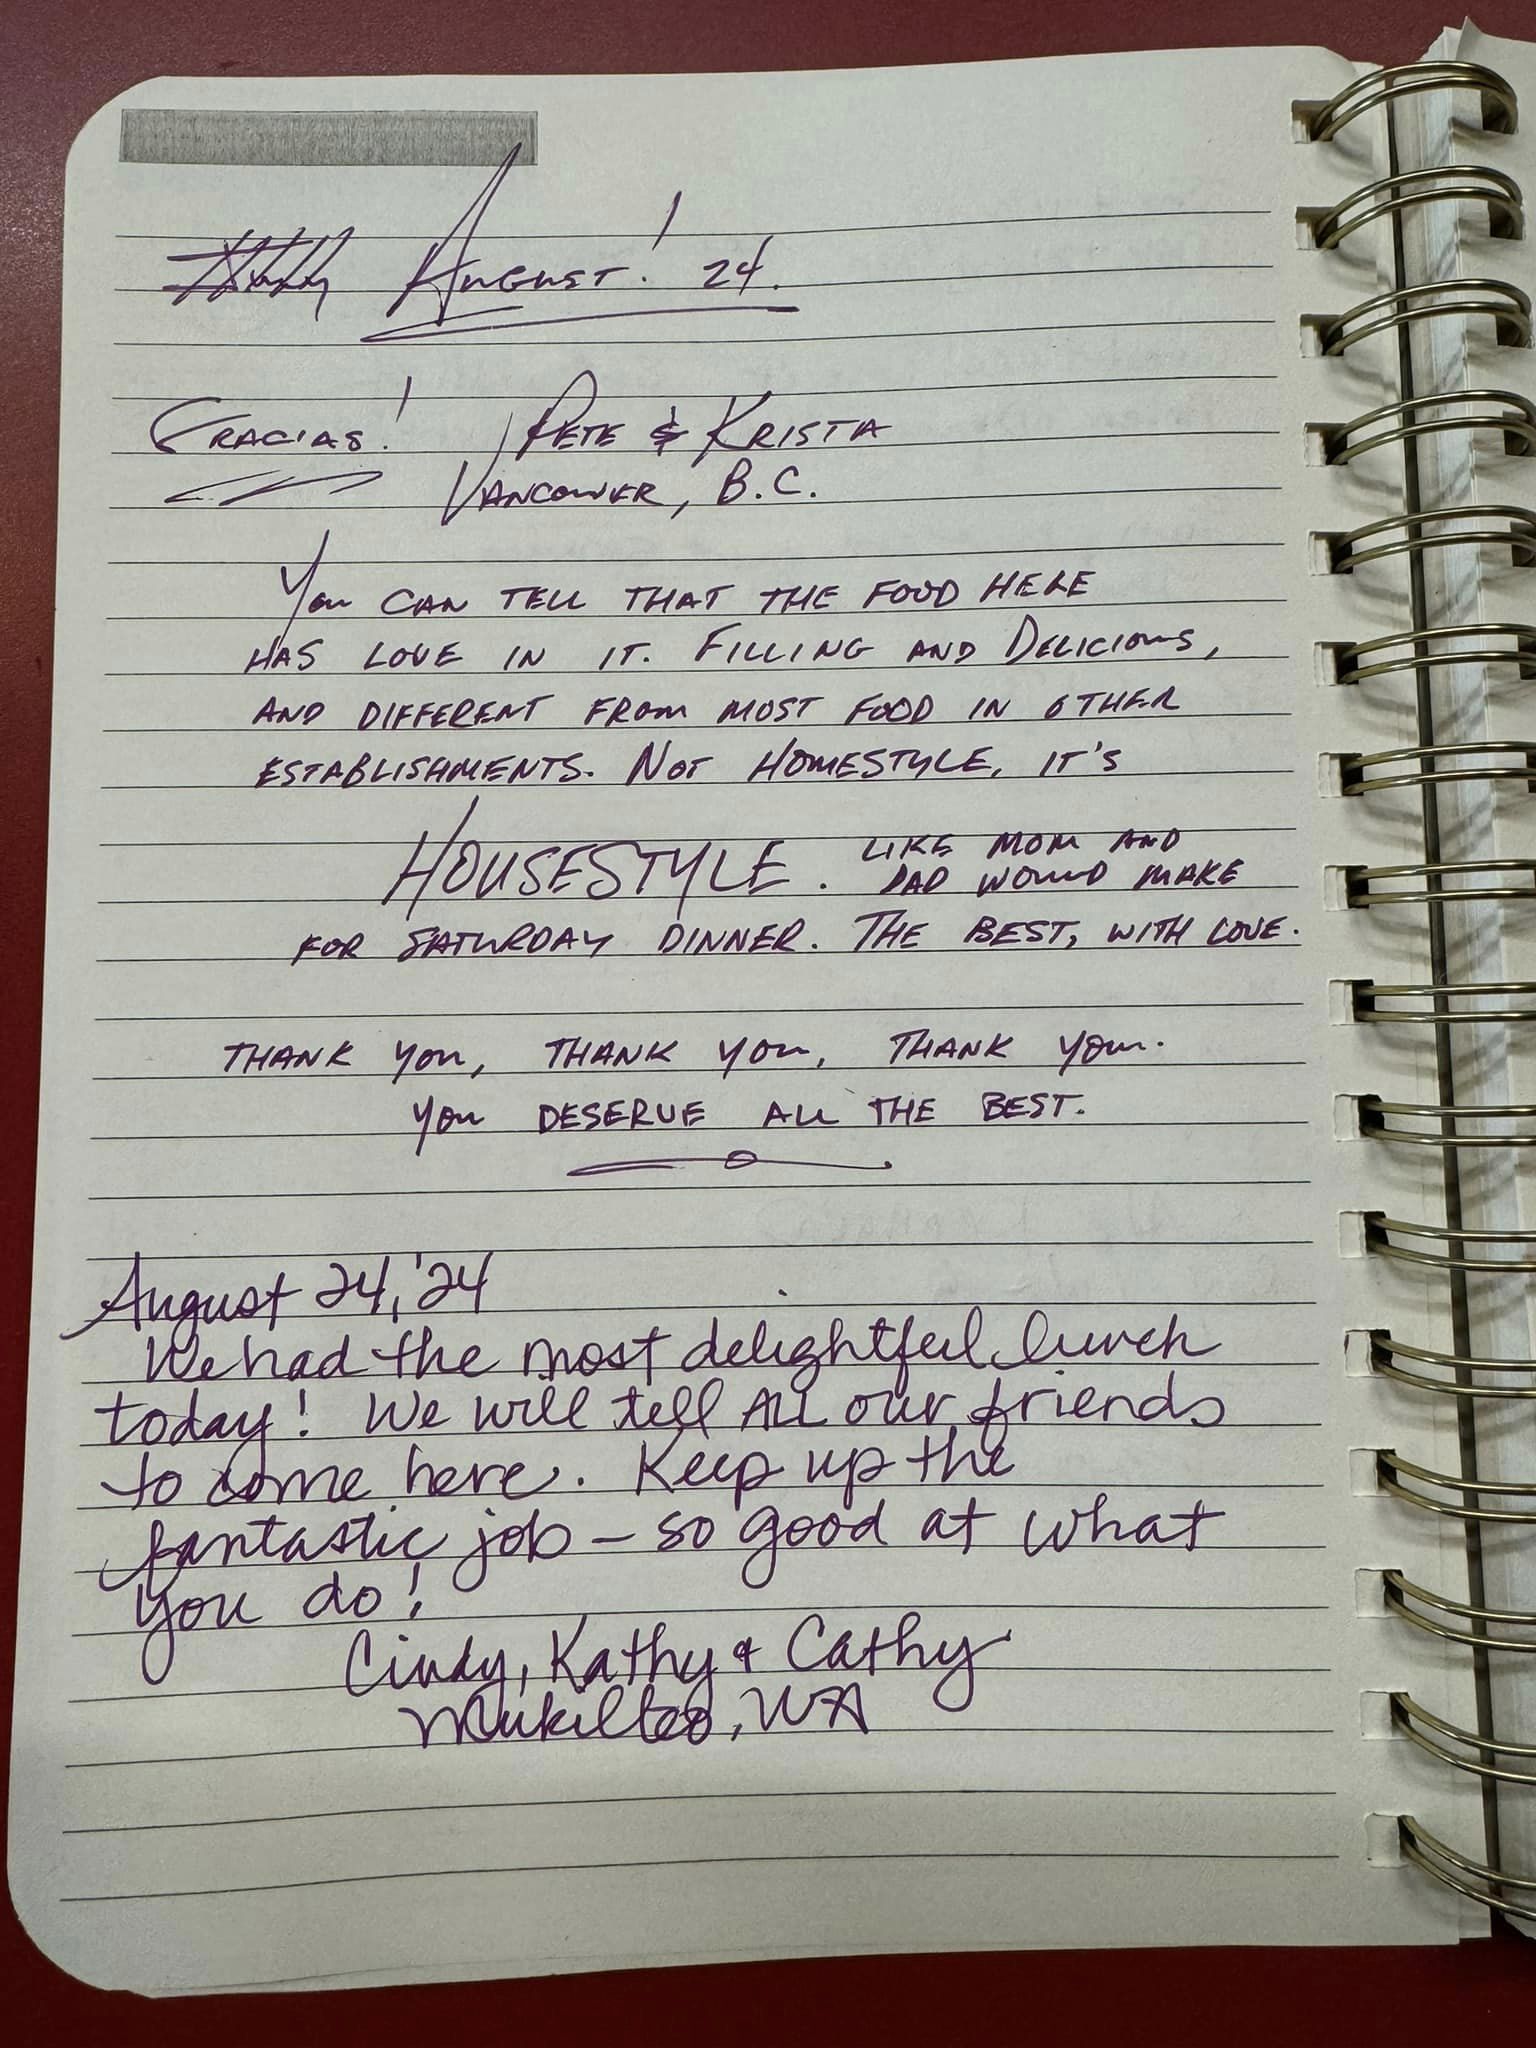 August! 24.
Gracias! Pete & Krista
Vancouver, B.C.
You can tell that the food here
has love in it. Filling and Delicious,
and different from most food in other
establishments. Not homestyle, it's
Housestyle. Like mom and
dad would make
for Saturday dinner. The best, with love.
Thank you, thank you, thank you.
You deserve all the best.
August 24, '24
We had the most delightful lunch
today! We will tell ALL our friends
to come here. Keep up the
fantastic job - so good at what
you do!
Cindy, Kathy & Cathy
Mukilteo, WA